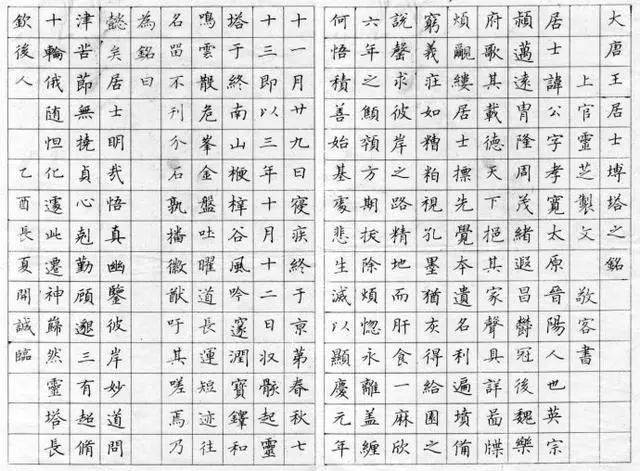 大唐王居士塼塔之銘
上官靈芝製文 敬客書
居士諱公字孝寬太原晉陽人也英宗
頴邁遠冑隆周茂緒遐昌鬱冠後魏樂
府歌其載德天下挹其家聲具詳啚牒
煩覼縷居士標先覺本遺名利遍墳備
窮義疰如糟粕視孔墨猶灰得給園之
說馨求彼岸之路精地而肝食一麻欣
六年之顦顇方期拔除煩惚永離盖纏
何悟積善始基處悲生滅以顯慶元年
十一月廿九日寢疾終于京第春秋七
十三即以三年十月十二日収骸起靈
塔于終南山梗梓谷風吟邃澗寶鐸和
鳴雲散危峯金盤吐曜道長運短迹往
名留不刊介石孰播徽猷吁其嗟焉乃
為銘曰
懿矣居士明哉悟真幽鑒彼岸妙道問
津苦節無撓貞心剋勤顧邈三有超脩
十輪俄随怛化遽此遷神巋然靈塔長
欽後人 乙酉長夏開誠臨